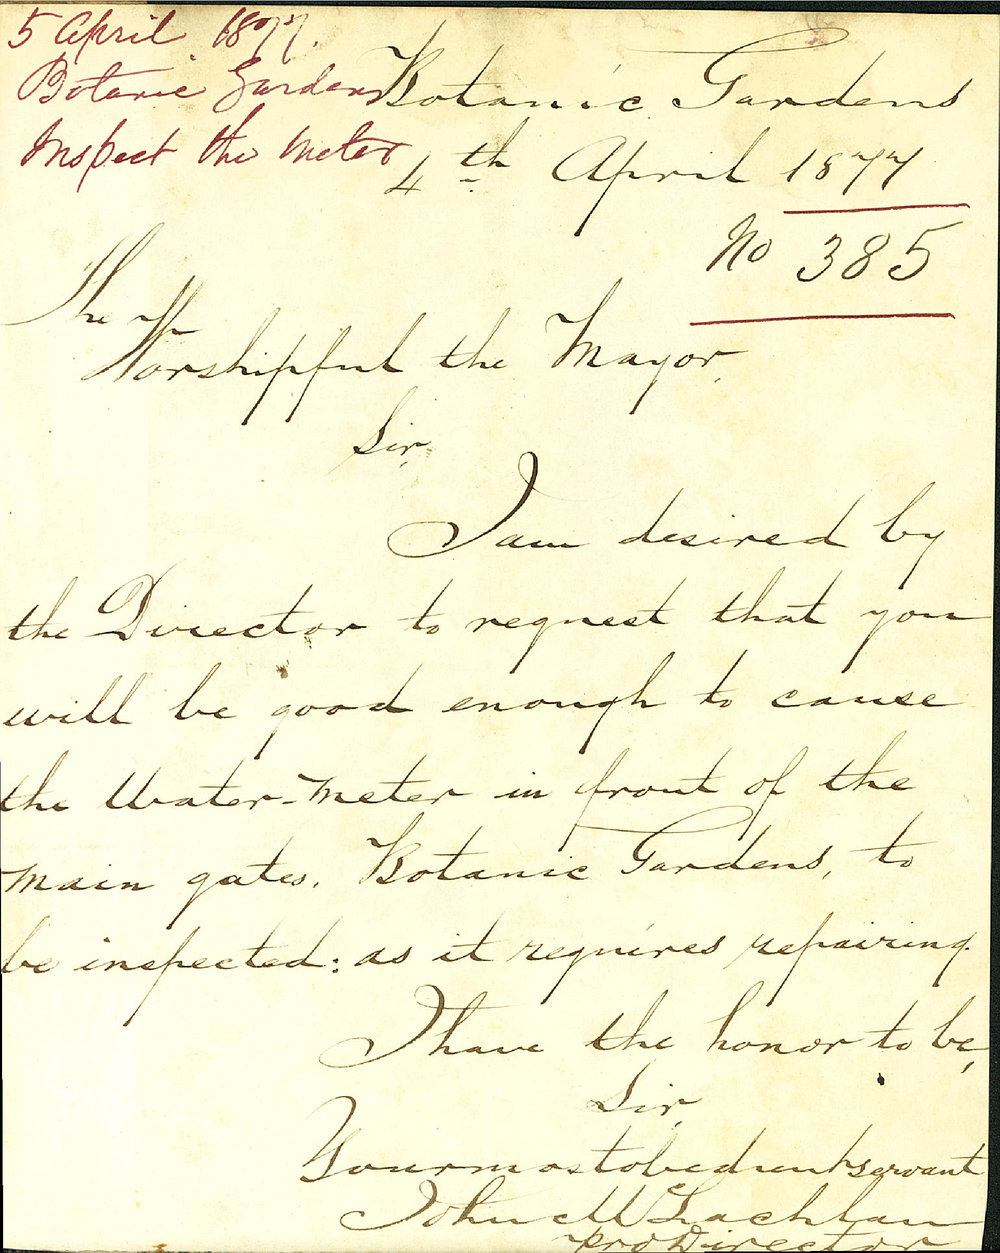 5 April 1877.
Botanic Gardens
Inspect the meter
Botanic Gardens
4th April 1877
No 385
The
Worshipful the Mayor,
Sir,
I am desired by
the Director to request that you
will be good enough to cause
the Water-meter in front of the
main gates, Botanic Gardens, to
be inspected: as it requires repairing.
I have the honor to be,
Sir,
Your most obedient servant
John McLachlan
pro Director